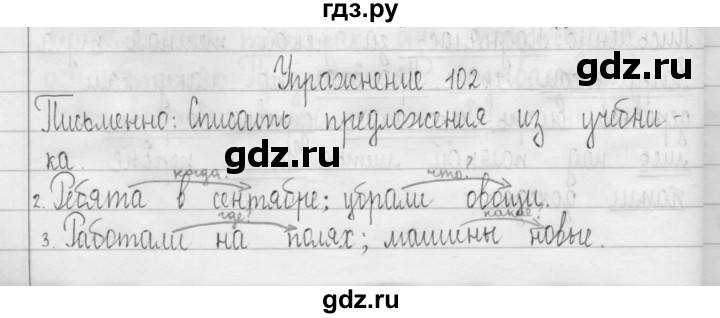 гдз.ру
Упражнение 102.
gdz.ru gdz.ru
Письменно: Списать предложения из учебни
ка.
когда? что?
2. Ребята в сентябре; убрали овощи.
где? какие?
3. Работали на полях; машины новые.
gdz.ru gdz.ru